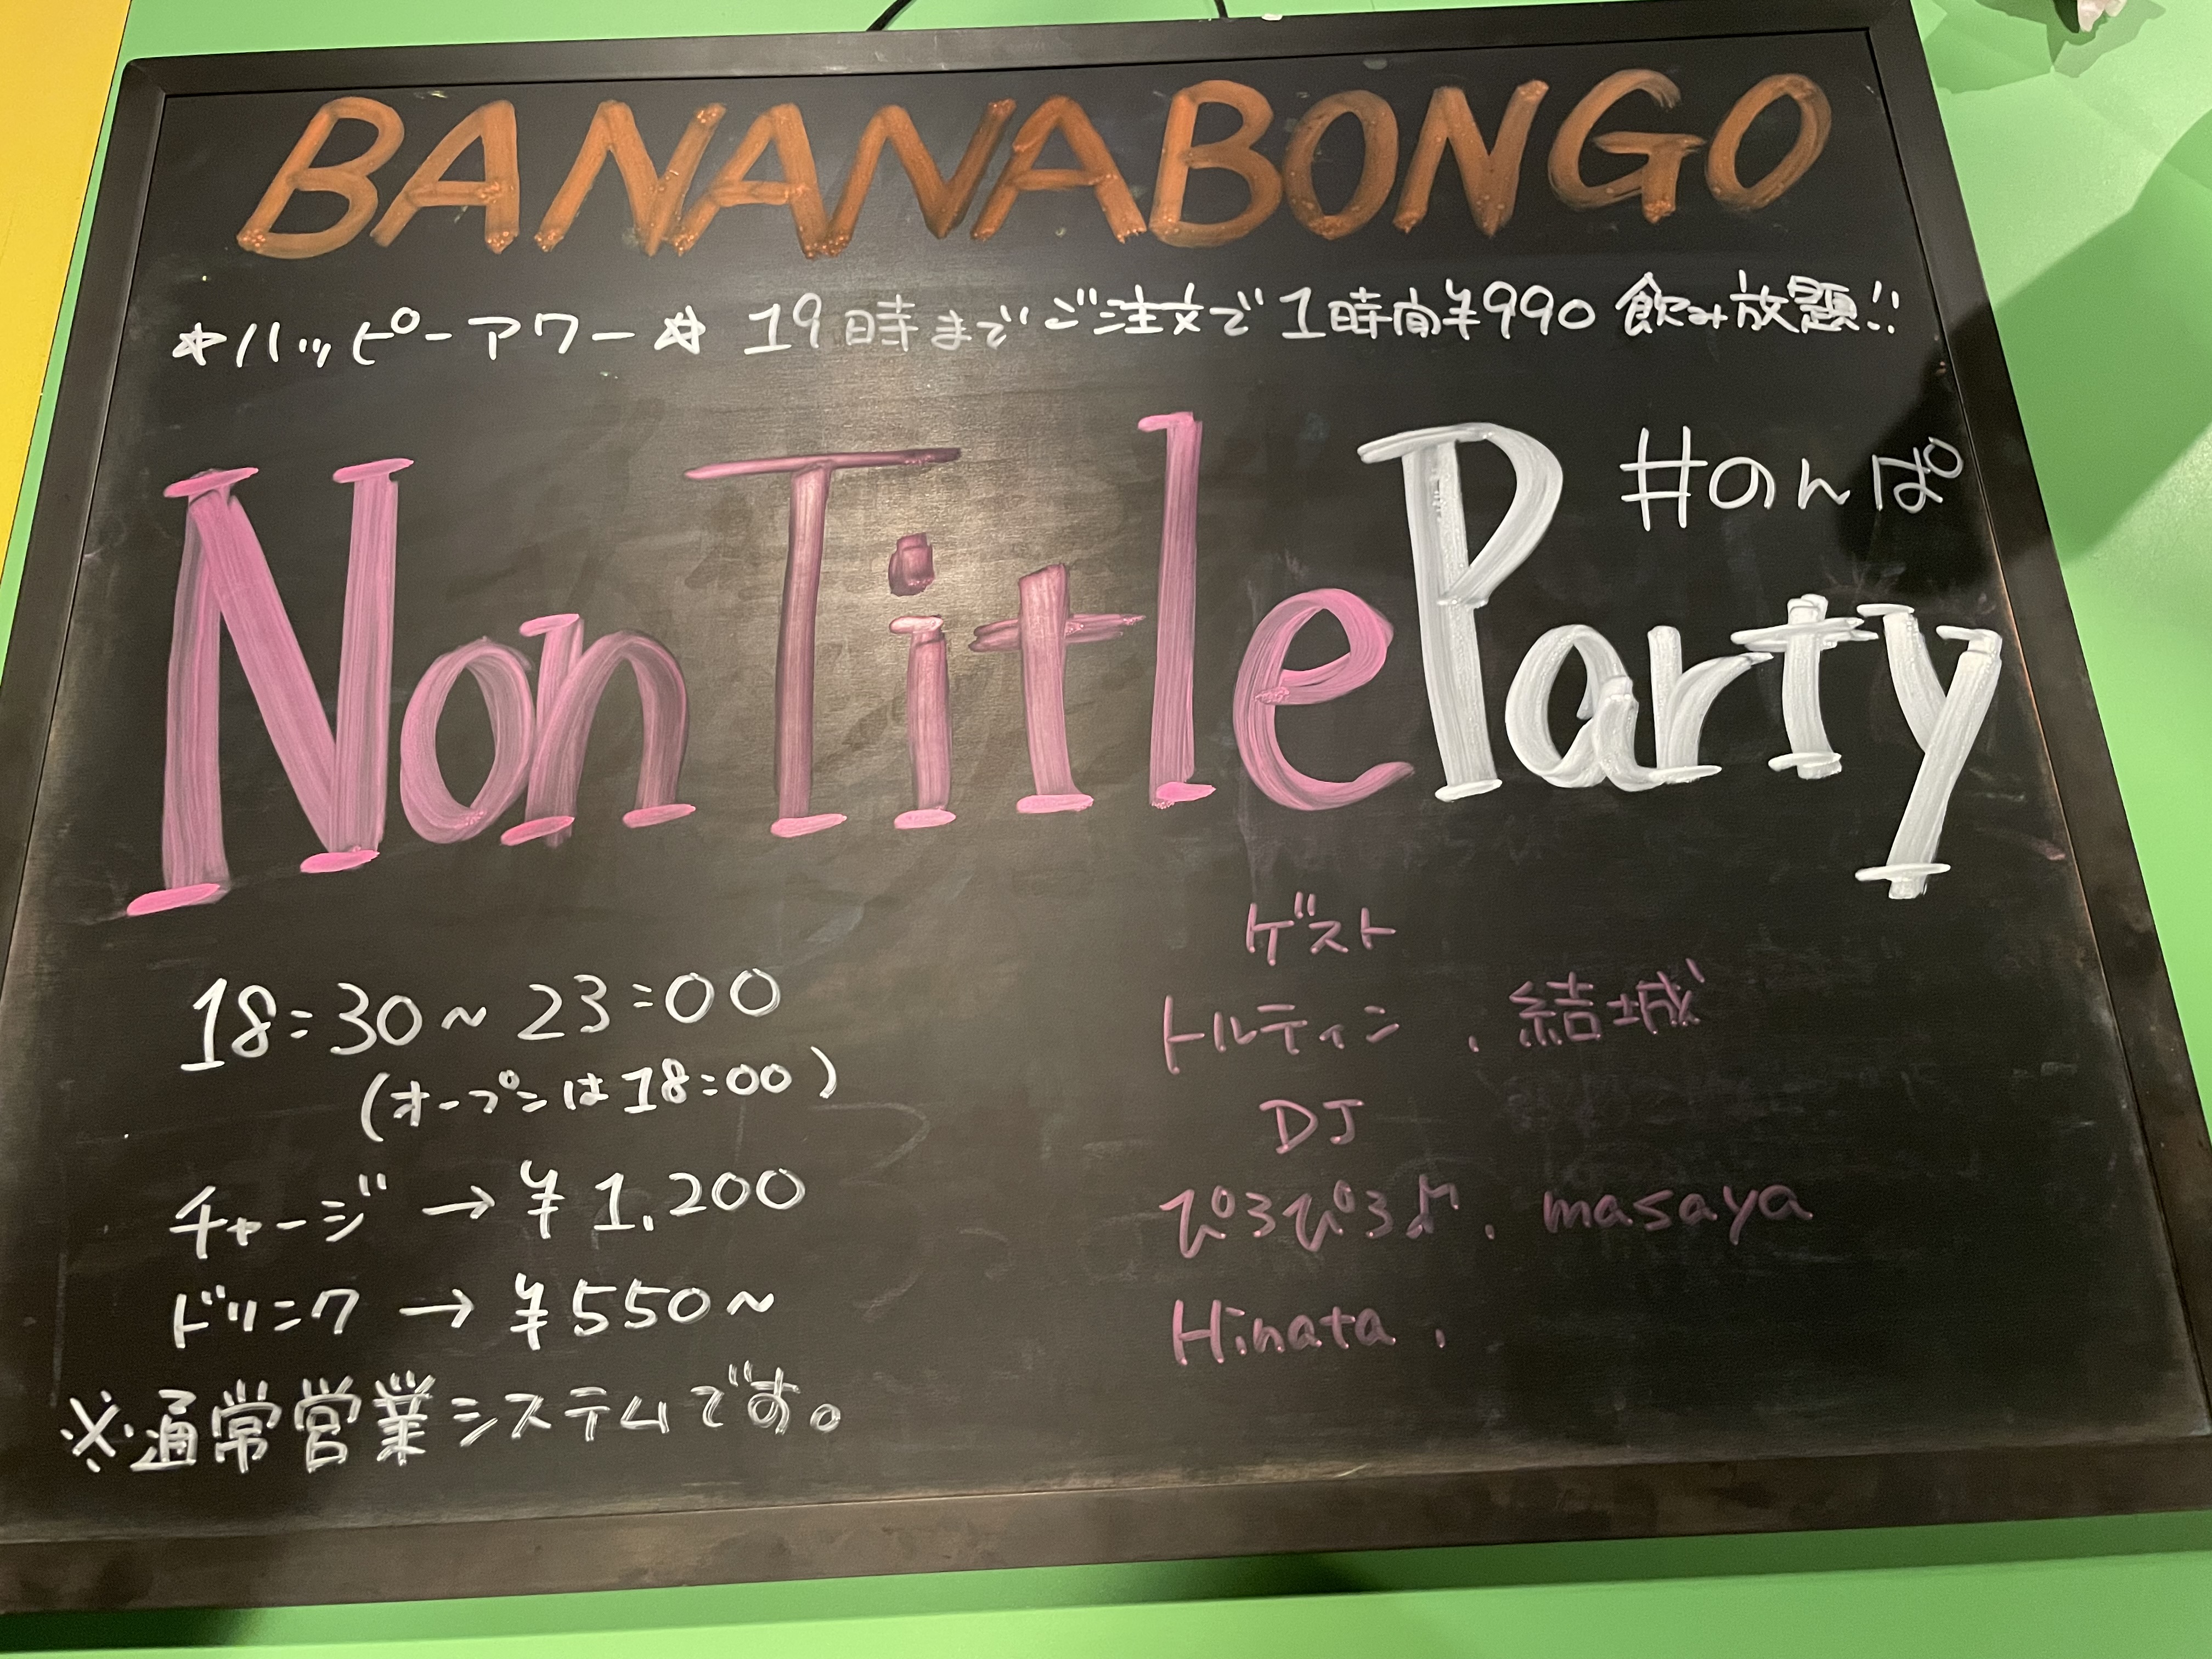 BANANABONGO
☆ハッピーアワー☆ 19時までご注文で1時間¥990飲み放題!!
#のんぱ
Non Title Party
18:30~23:00
(オープンは18:00)
チャージ→¥1,200
ドリンク→¥550~
※通常営業システムです。
ゲスト
トルティン、結城
DJ
ぴろぴろ♪、masaya
Hinata、